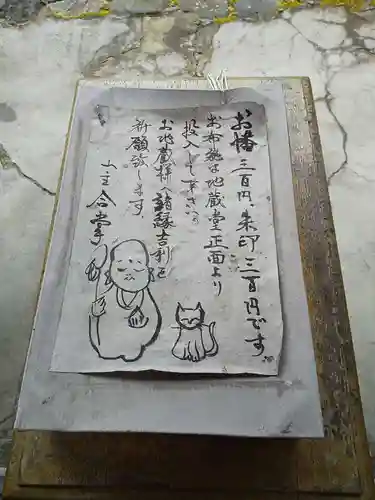 お幡 三百円、朱印 三百円です
お布施は地蔵堂正面より
投入して下さい。
お地蔵拝人諸縁吉利を
祈願致します。
山主 合掌